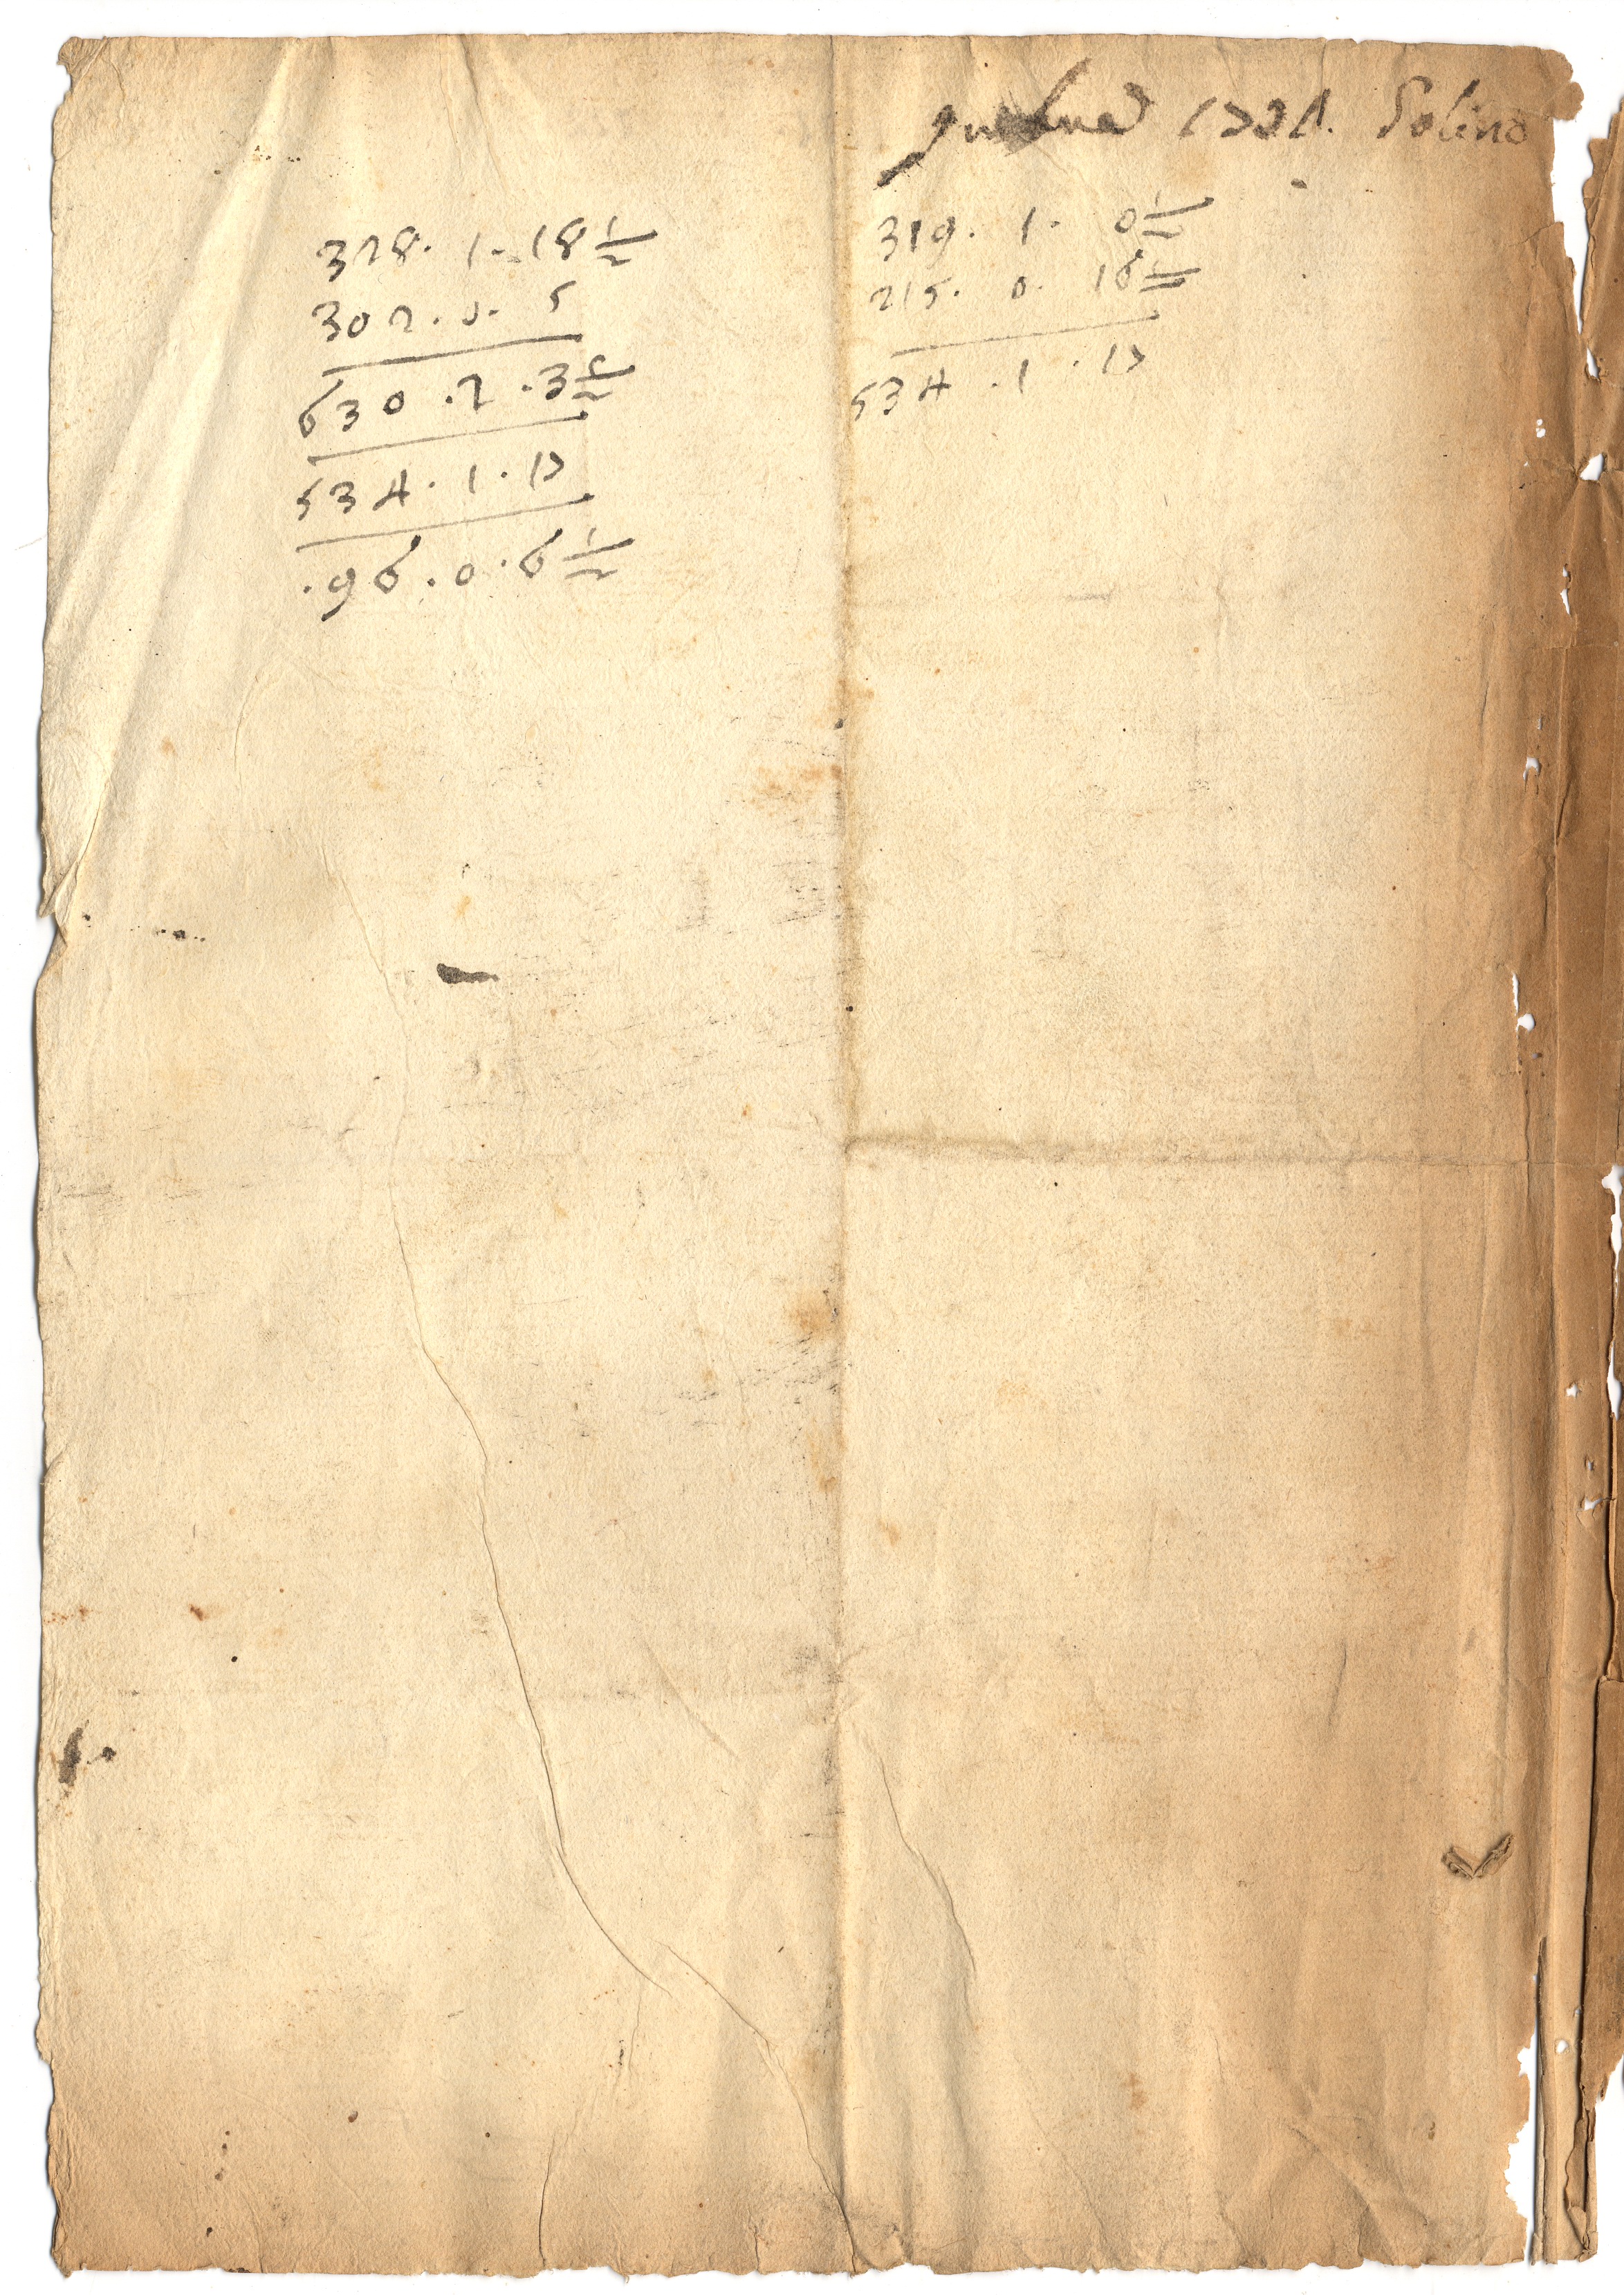 1734. Solino
328. 1. 18 1/2
302. 0. 5
630. 2. 3 1/2
534. 1. 17
.96. 0. 6 1/2
319. 1. 0 1/2
215. 0. 16 1/2
534. 1. 17